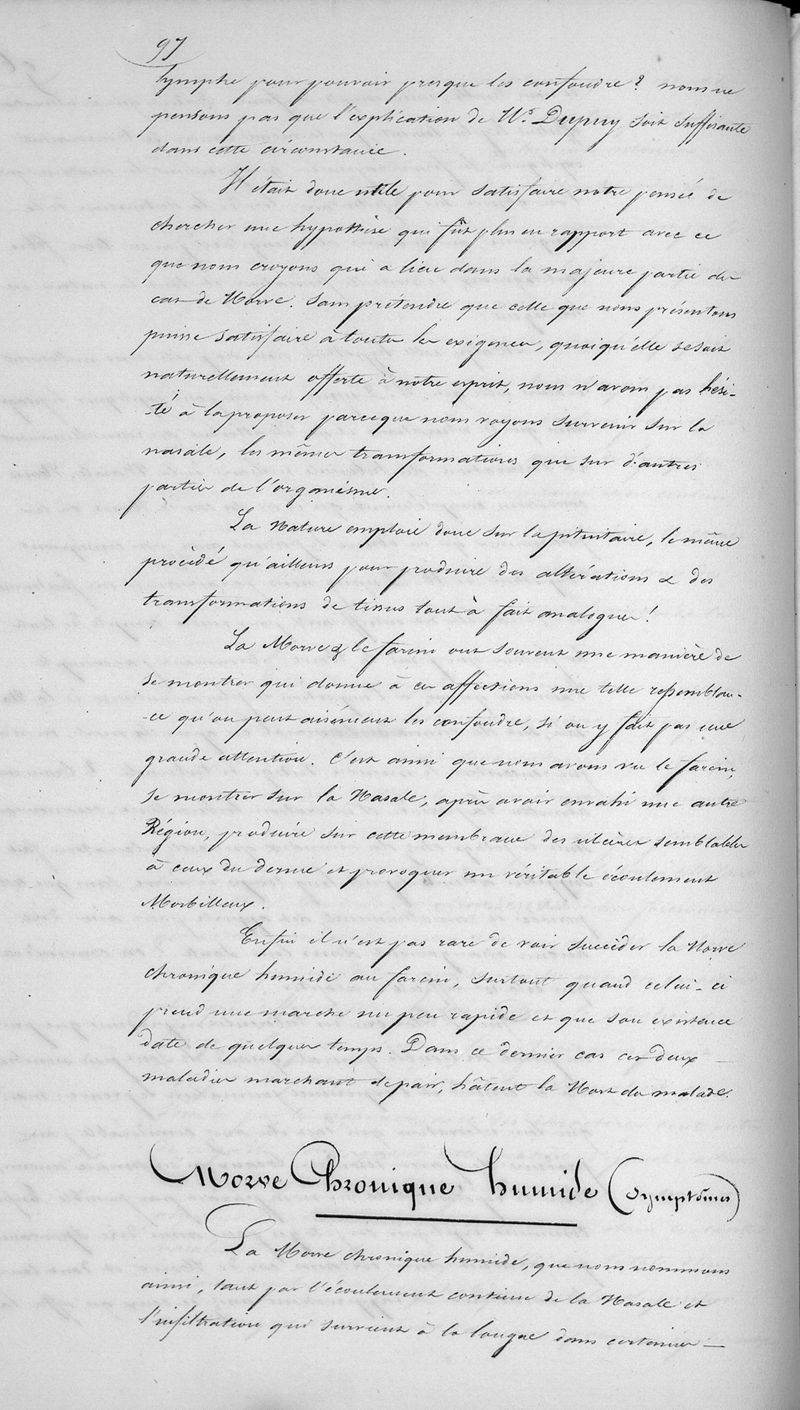 97
lymphe pour pouvoir presque les confondre? nous ne
pensons pas que l'explication de Mr. Dupuy soit suffisante
dans cette circonstance.
Il était donc utile pour satisfaire notre pensée de
chercher une hypothèse qui fût plus en rapport avec ce
que nous croyons qui a lieu dans la majeure partie des
cas de Morve. Sans prétendre que celle que nous présentons
puisse satisfaire à toutes les exigences, quoiqu'elle se soit
naturellement offerte à notre esprit, nous n'avons pas hési-
-té à la proposer parceque nous voyons survenir sur la
nasale, les mêmes transformations que sur d'autres
parties de l'organisme.
La Nature emploie donc sur la pituitaire, le même
procédé qu'ailleurs pour produire des altérations & des
transformations de tissus tout à fait analogues!
La Morve & le farcin ont souvent une manière de
se montrer qui donne à ces affections une telle ressemblan-
-ce qu'on peut aisément les confondre, si on y fait pas une
grande attention. C'est ainsi que nous avons vu le farcin,
se montrer sur la Nasale, après avoir envahi une autre
Région, produire sur cette membrane des ulcères semblables
à ceux du derme et provoquer un véritable écoulement
Morbilleux.
Enfin il n'est pas rare de voir succéder la Morve
chronique humide au farcin, surtout quand celui-ci
prend une marche un peu rapide et que son existence
date de quelques temps. Dans ce dernier cas ces deux
maladies marchant de pair, hâtent la Mort du malade.
Morve Chronique humide (Symptômes)
La Morve chronique humide, que nous nommons
ainsi, tant par l'écoulement continu de la Nasale et
l'infiltration qui survient à la longue dans certaines